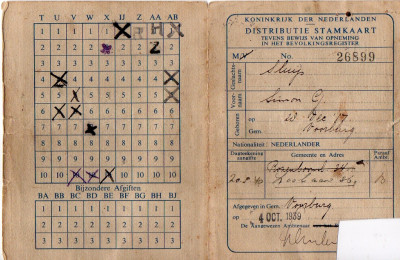 T U V W X IJ Z AA AB
1 1 1 1 1
2 2 2 2 2 2 2
3 3 3 3 3 3 3 3 3
4 4 4 4 4 4 4
5 5 5 5 5 5 5
6 6 6 6 6 6 6
7 7 7 7 7 7 7 7
8 8 8 8 8 8 8 8 8
9 9 9 9 9 9 9 9 9
10 10 10 10 10 10
Bijzondere Afgiften
BA BB BC BD BE BF BG BH BJ
1 1 1 1 1 1 1 1 1
2 2 2 2 2 2 2 2 2
3 3 3 3 3 3 3 3 3
KONINKRIJK DER NEDERLANDEN
DISTRIBUTIE STAMKAART
TEVENS BEWIJS VAN OPNEMING
IN HET BEVOLKINGSREGISTER
No. 26899
Geslachtsnaam
Sluijs
Voornaam
Simon
Geboren
23 Dec
Gem. Voorburg
Nationaliteit: NEDERLANDER
Gemeente en Adres
Paraaf Ambt.
Afgegeven in Gem. Voorburg
op 4 OCT. 1939
De Aangewezen Ambtenaar